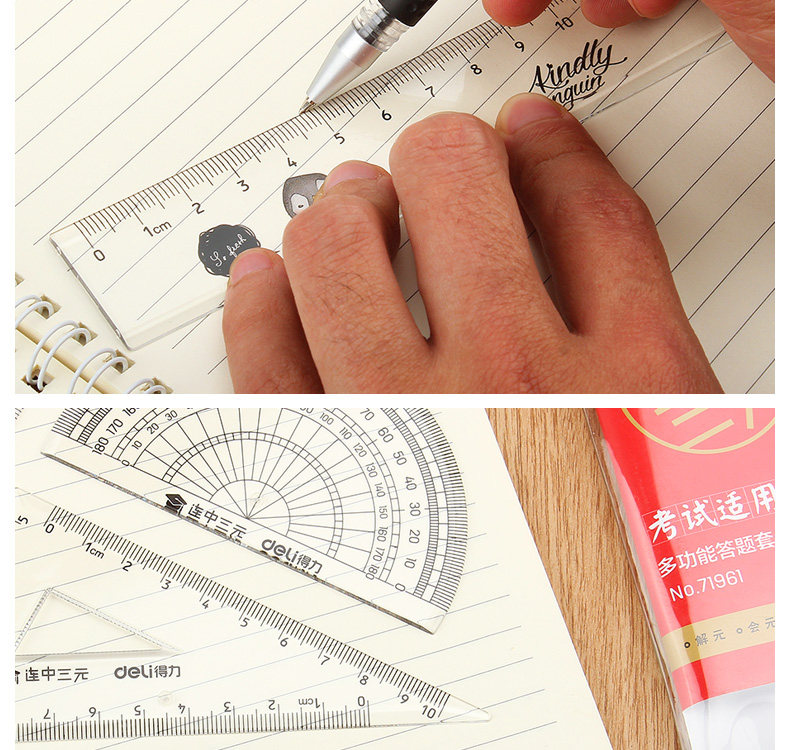 0 1cm 2 3 4 5 6 7 8 9 10
Kindly
So fresh
180 170 160
0 10 20 30
70
60
50
40
30
20
10
0
150
160
170
180
连中三元
deli得力
5
0 1cm 2 3 4 5 6 7 8 9 10
连中三元 deli得力
7 6 5 4 3 2 1cm 0
考试适用
多功能答题套
No.71961
解元 会元